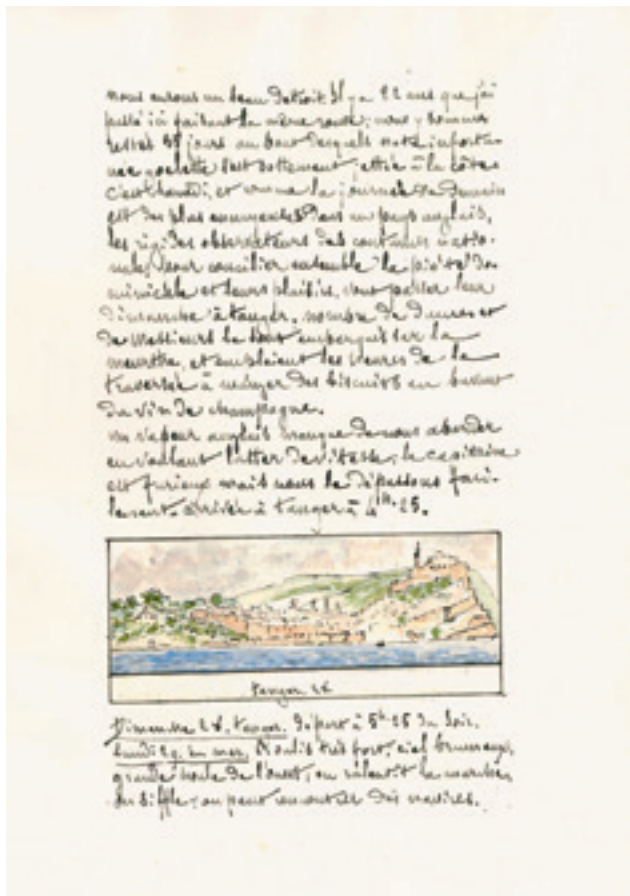 nous avons un beau Détroit. Il y a 22 ans que j'ai
passé ici faisant la même route; nous y sommes
restés 38 jours au bout desquels notre infortu-
née goelette s'est sottement jettée à la côte.
c'est Samedi, et comme la journée de Demain
est des plus ennuyeuses Dans un pays anglais,
les rigides observateurs des coutumes natio-
nales pour concilier ensemble la piété Do-
minicale et leurs plaisirs, vont passer leur
Dimanche à tanger. nombre de Dames et
de Messieurs se sont embarqués sur la
meurthe, et emploient les heures de la
traversée à manger des biscuits en buvant
du vin de champagne.
un vapeur anglais manque de nous aborder
en voulant lutter de vitesse, le capitaine
est furieux mais nous le dépassons faci-
lement. arrivée à tanger à 4h. 25.
tanger 28
Dimanche 28. tanger. départ à 5h 25 du soir.
Lundi 29. en mer. Roulis très fort, ciel brumeux,
grande houle de l'ouest, on ralentit la marche,
on siffle; on peut rencontrer des navires.